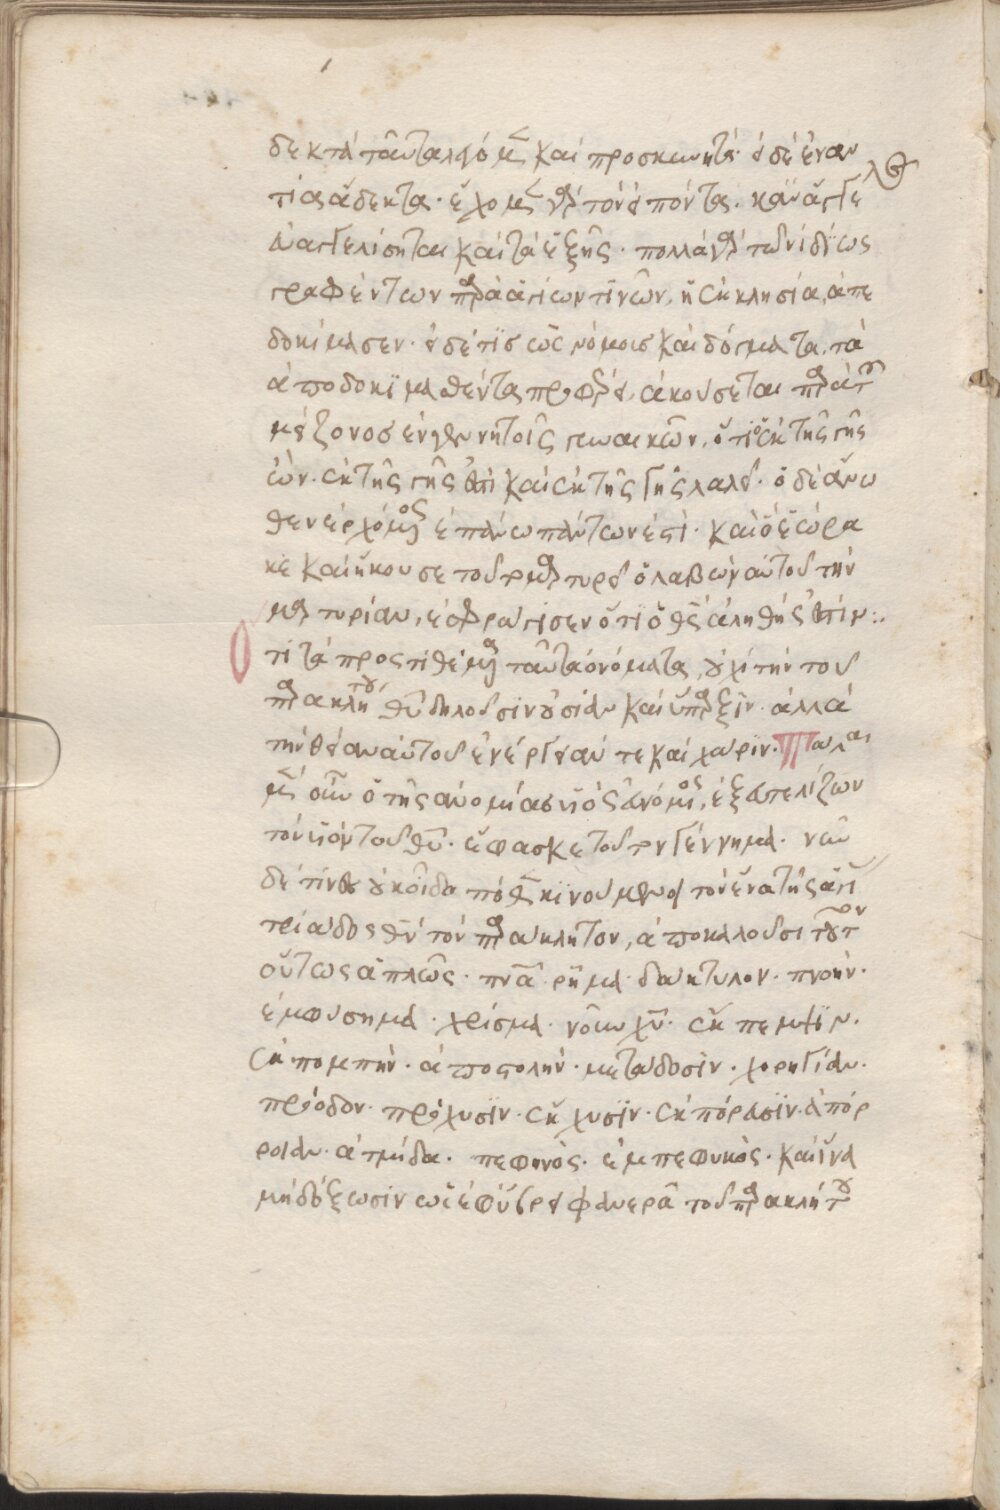 δεκτὰ ταῦτα λέγομεν καὶ προσκυνητά· εἰ δὲ ἐναν
τία ἄδεκτα· ἔχομεν γὰρ τὸν εἰπόντα· κἂν ἄγγε
λος εὐαγγελίσηται καὶ τὰ ἑξῆς· πολλὰ γὰρ τῶν ἰδίως
γραφέντων παρὰ ἁγίων τινῶν, ἡ ἐκκλησία ἀπε
δοκίμασεν· εἰ δέ τις ὡς νόμοις καὶ δόγματα, τὰ
ἀποδοκιμασθέντα προφέρει, ἀκούσεται παρὰ τοῦ
μείζονος ἐν γεννητοῖς γυναικῶν, ὅτι ὁ ἐκ τῆς γῆς
ὢν· ἐκ τῆς γῆς ἐστὶ καὶ ἐκ τῆς γῆς λαλεῖ· ὁ δὲ ἄνω
θεν ἐρχόμενος ἐπάνω πάντων ἐστί· καὶ ὃ ἑώρα
κε καὶ ἤκουσε τοῦτο μαρτυρεῖ ὁ λαβὼν αὐτοῦ τὴν
μαρτυρίαν, ἐσφράγισεν ὅτι ὁ θς ἀληθής ἐστιν:·
τι τὰ προστιθέμενα ταῦτα ὀνόματα, οὐχὶ τὴν τοῦ
παρακλήτου θῦ δηλοῦσιν οὐσίαν καὶ ὕπαρξιν· ἀλλὰ
τὴν θείαν αὐτοῦ ἐνέργειάν τε καὶ χάριν· Πάλαι
μὲν οὖν ὁ τῆς ἀνομίας υἱὸς ἄνομος, ἐξευτελίζων
τὸν υἱὸν τοῦ θῦ· ἔφασκε τοῦτον γέννημα· νῦν
δέ τινες οὐκ οἶδα πόθεν κινούμενοι τὸν ἕνα τῆς ἁγί
τριάδος θν τὸν παράκλητον, ἀποκαλοῦσι τοῦτον
οὕτως ἁπλῶς· πνᾶ· ῥῆμα· δάκτυλον· πνοήν·
ἐμφύσημα· χρίσμα· νοῦν χῦ· ἔκπεμψιν·
ἐκπομπήν· ἀποστολήν· μετάδοσιν· χορηγίαν·
πρόοδον· πρόχυσιν· ἔκχυσιν· ἐκπόρευσιν· ἀπόρ
ροιαν· ἀτμίδα· πεφηνός· ἐμπεφυκός· καὶ ἵνα
μὴ δόξωσιν ὡς ἐφύβρει φανερᾷ τοῦ παρακλήτου